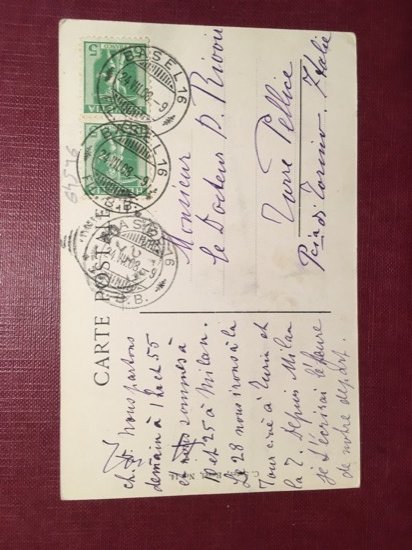 CARTE POSTALE
BASEL 16
24.VII.08.-9
BASEL 16
24.VII.08.-9
B.B.
BASEL 16
VII.08.-9
B.B.
Monsieur
Le Docteur D. Rivoir
Torre Pellice
Pcia di Torino. Italie
ch. D. Nous partons
demain à 1 h et 55
et sommes à
10 et 25 à Milan.
Le 28 nous irons à la
Tour ciné à Turin et
la 7. Depuis Milan
je t'écrirai l'heure
de notre départ.